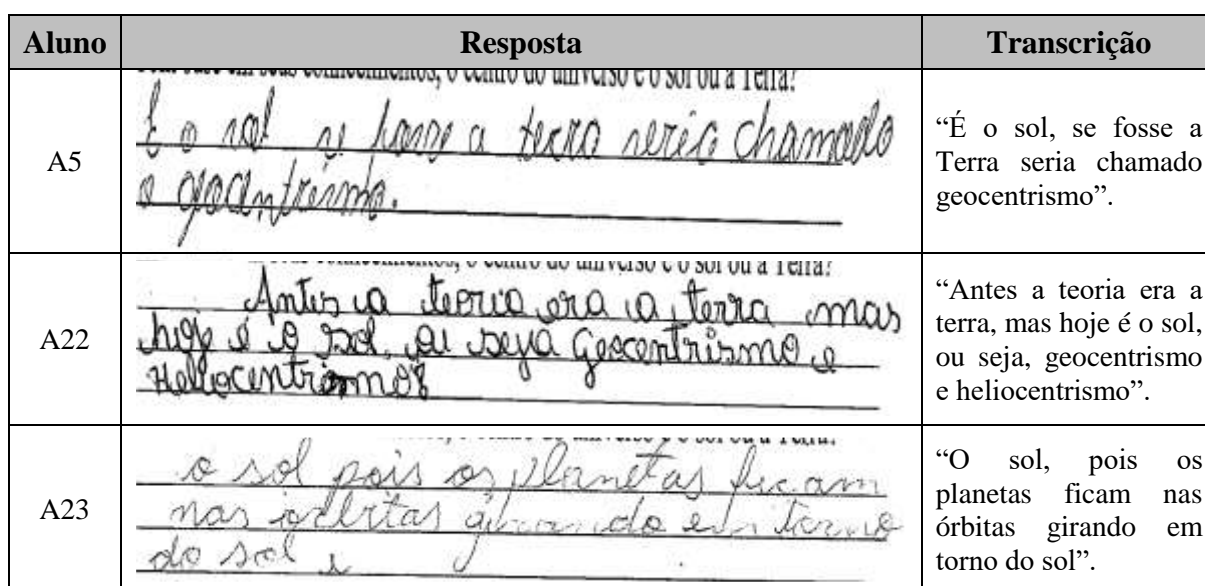 Aluno Resposta Transcrição
com base em seus conhecimentos, o centro do universo é o sol ou a Terra?
É o sol se fosse a terra seria chamado
o geocntrismo.
A5
“É o sol, se fosse a
Terra seria chamado
geocentrismo”.
conhecimentos, o centro do universo é o sol ou a Terra?
Antes a teoria era a terra mas
hoje é o sol, ou seja Geocentrismo e
Heliocentrismo
A22
“Antes a teoria era a
terra, mas hoje é o sol,
ou seja, geocentrismo
e heliocentrismo”.
o centro do universo é o sol ou a Terra?
o sol pois os planetas ficam
nas orbitas girando em torno
do sol
A23
“O sol, pois os
planetas ficam nas
órbitas girando em
torno do sol”.